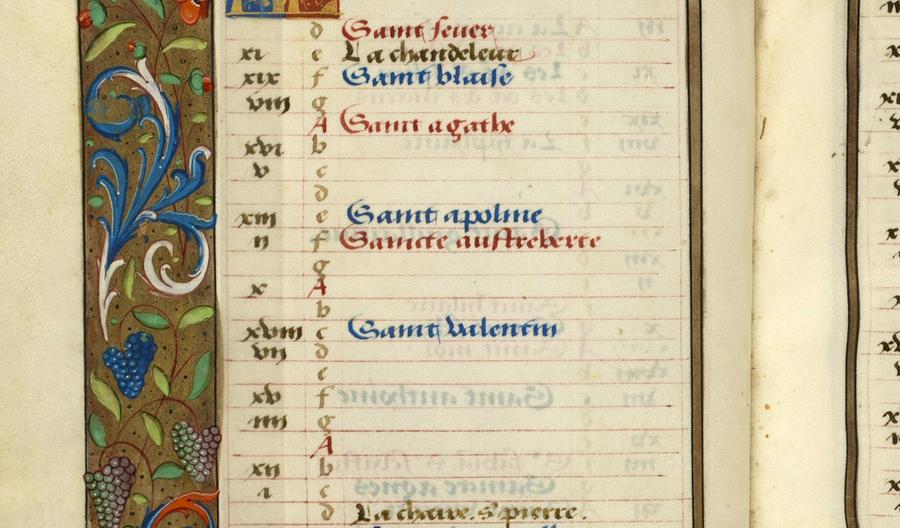 d Saint sever
xi e La chandeleur
xix f Saint blaise
viii g
A Saint agathe
xvi b
v c
d
xiii e Saint apoline
ii f Saincte austreberte
g
x A
b
xviii c Saint valentin
vii d
e
xv f
iiii g
A
xii b
i c
d La chaire s' pierre.